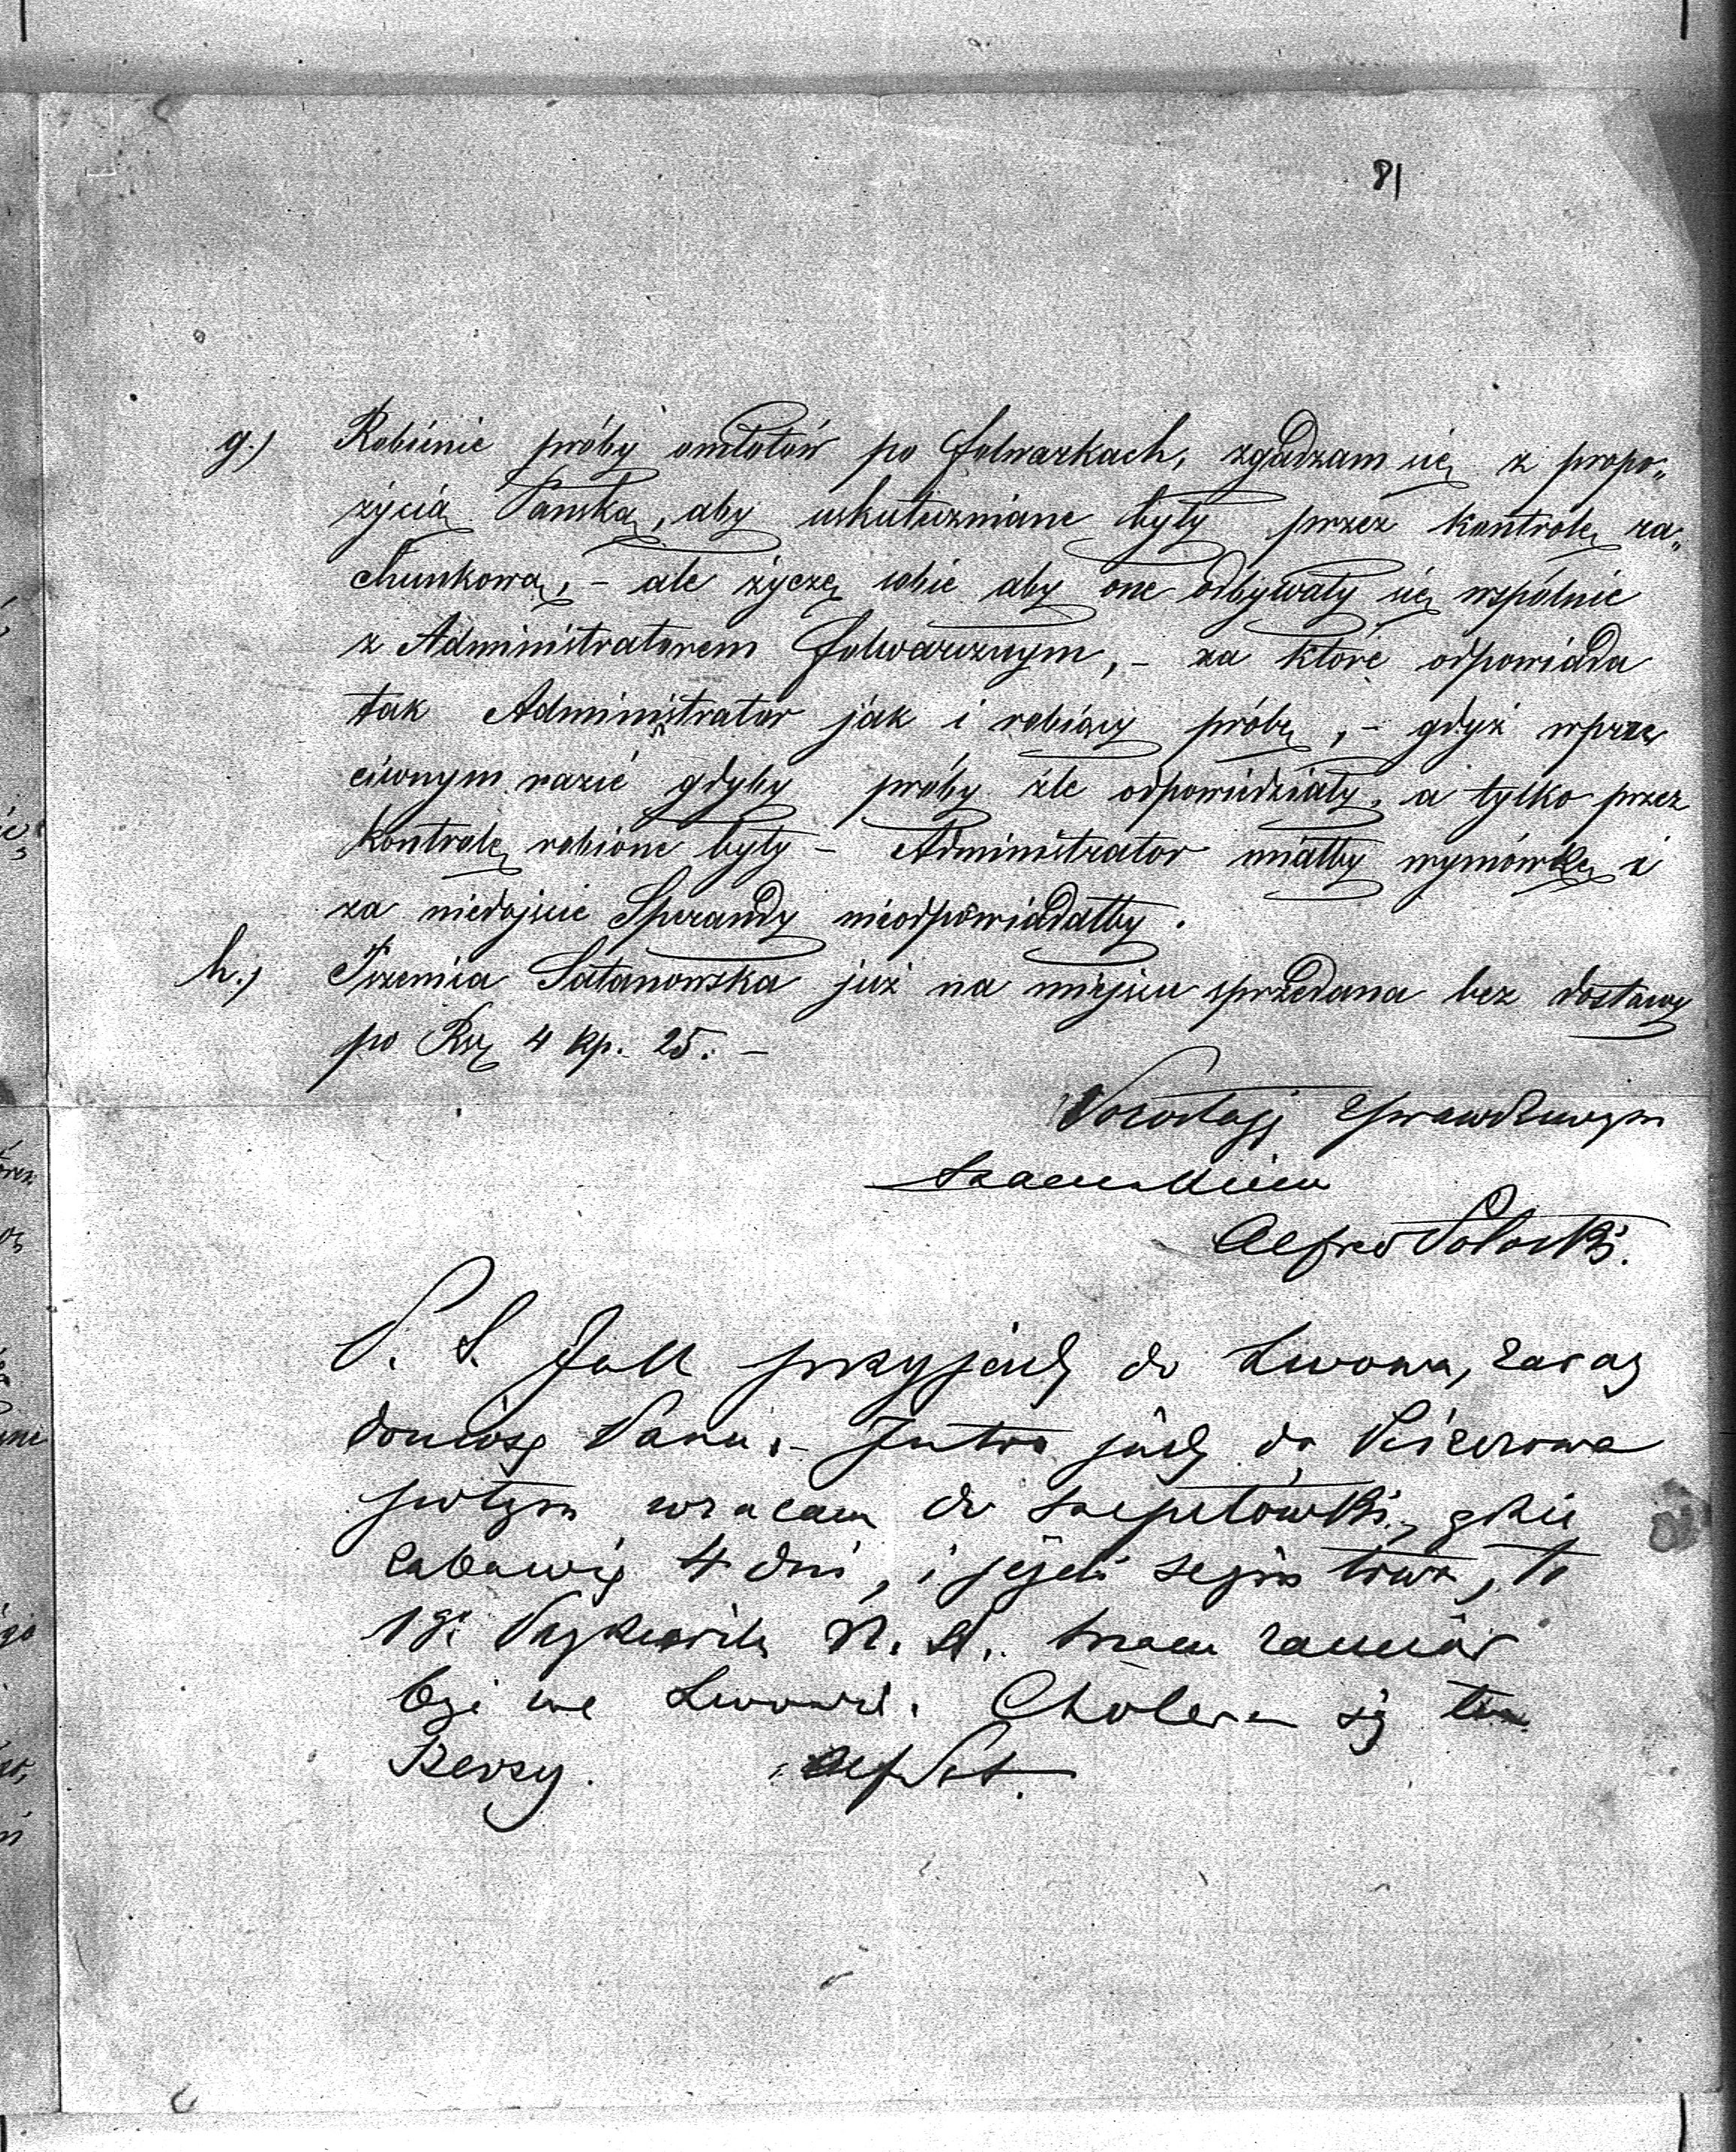 81
g.) Robienie próby omłotów po folwarkach, zgadzam się z propo„
zycią Pańską, aby uskuteczniane były przez kontrolę ra„
chunkową, - ale życzę sobie aby one odbywały się wspólnie
z Administratorem folwarcznym, - za które odpowiada
tak Administrator jak i robiący próbę, - gdyż wprze
ciwnym razie gdyby próby źle odpowiedziały, a tylko przez
kontrolę robione były - Administrator miałby wymówkę i
za niedojście Sperandy nieodpowiadałby.
h.) Pszenica Satanowska już na miejscu sprzedana bez dostawy
po Rsr 4 kp. 25. -
Pozostaję z prawdziwym
szacunkiem
Alfred Potocki.
P. S. Jak przyjadę do Lwowa, zaraz
doniosę Panu. - Jutro jadę do
potym wracam do Szepetówki, gdzie
zabawię 4 dni, i jeżeli sejm trwa, to
1go N. S. mam zamiar
być we Lwowie. Cholera się tu
szerzy. Alf Pot.